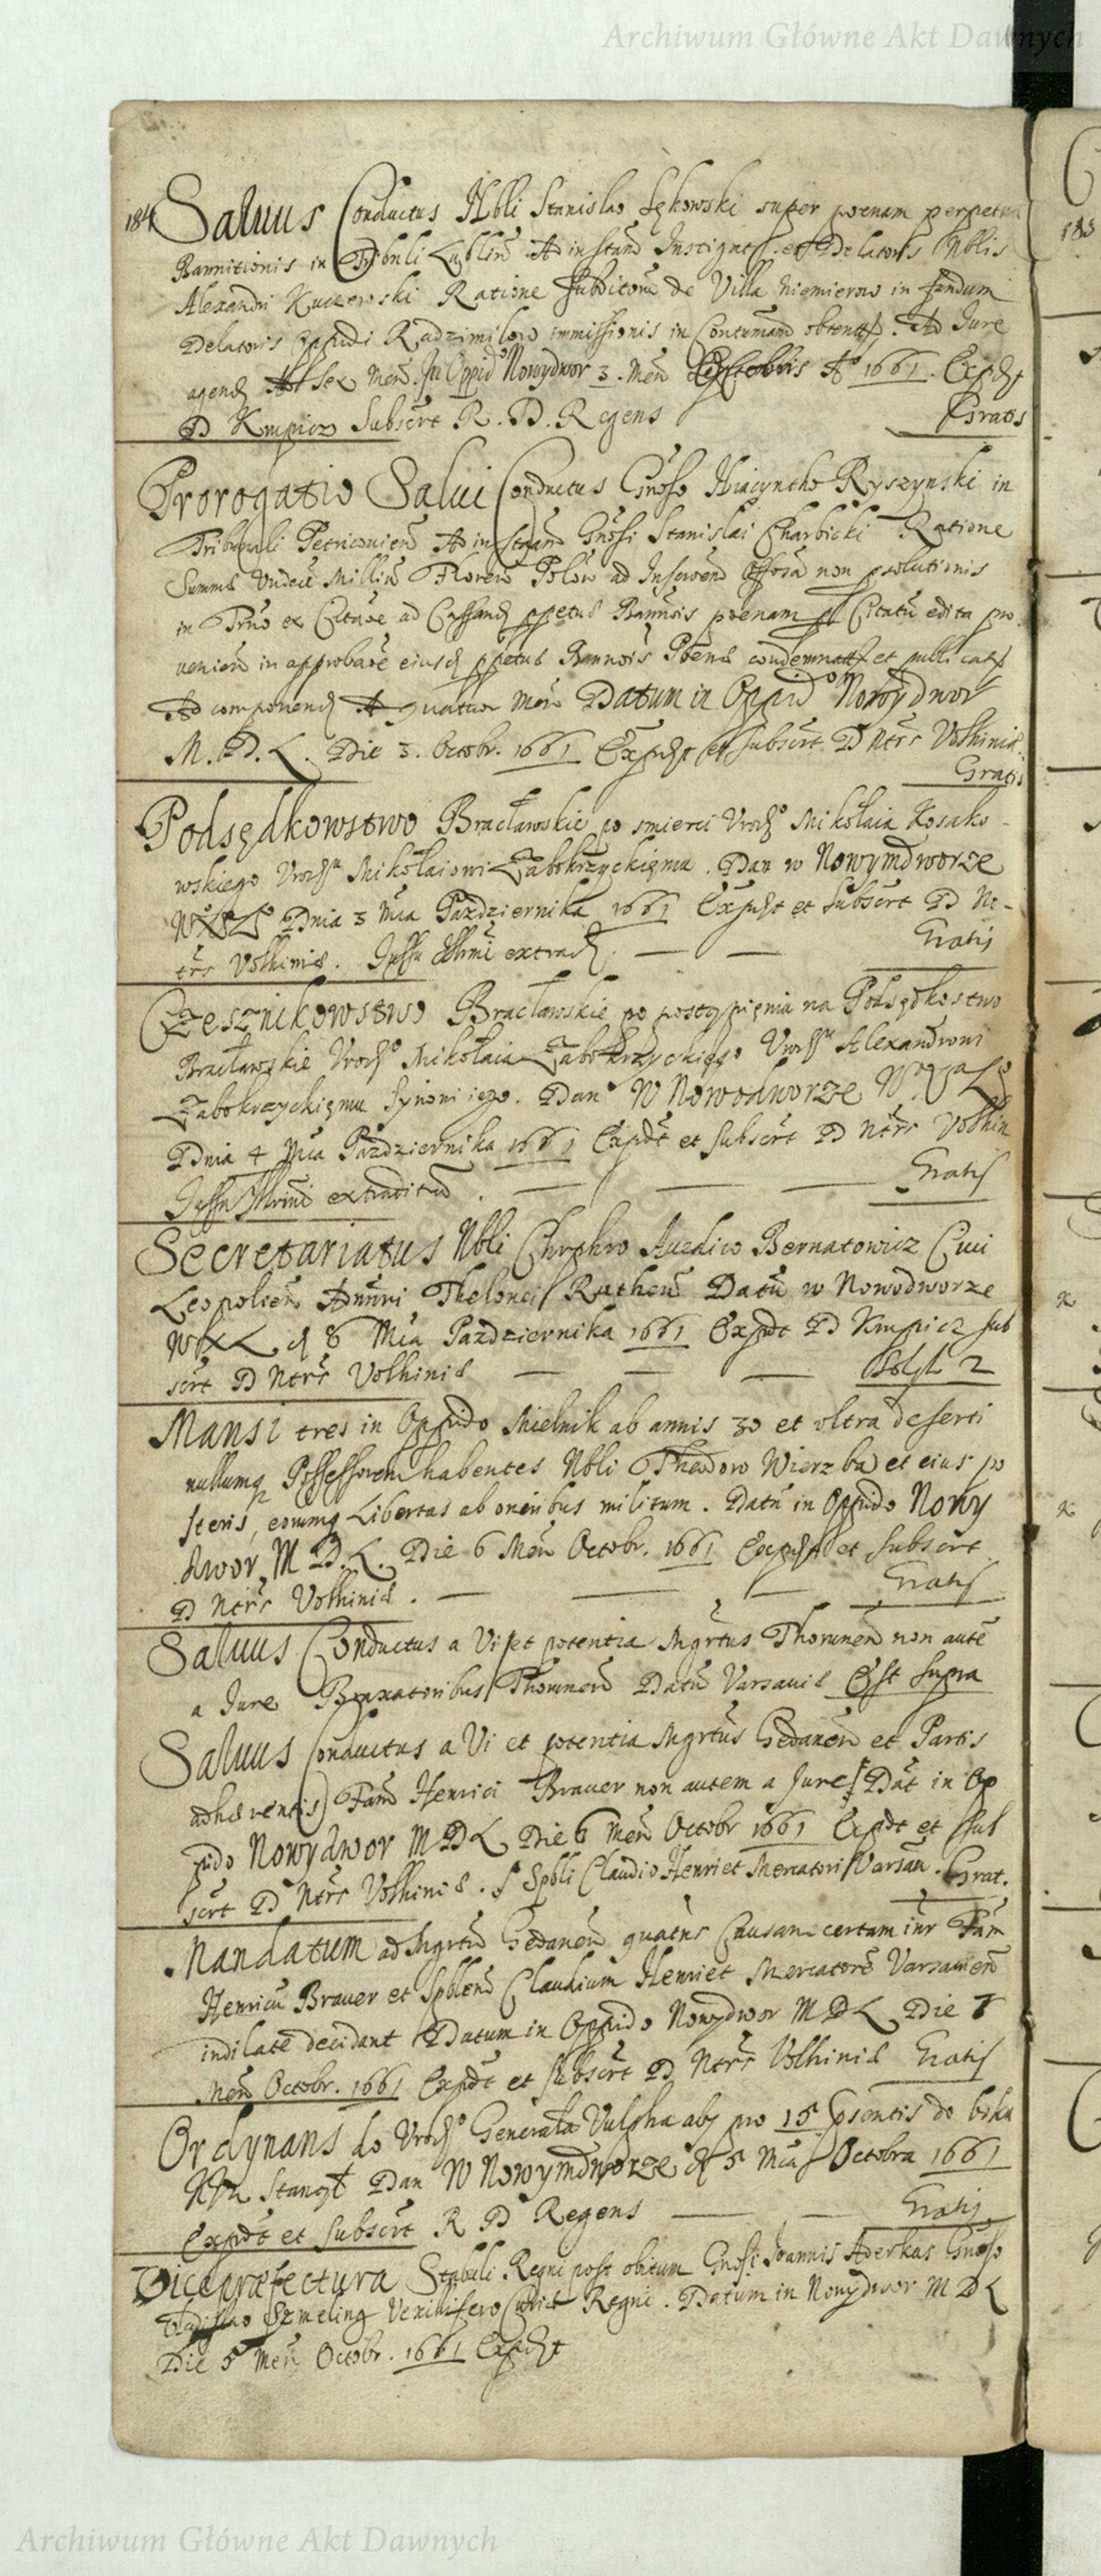 Archiwum Główne Akt Dawnych
184 Saluus Conductus Nbli Stanislao Sękowski super poenam perpetuæ
Bannitionis in Tribnli Lublin Ad instand Instigat et Delatoris Nblis
Alexandri Kuczewski Ratione subditorũ de Villa Niemierow in fundum
Delatoris Oppidi Radzimilow immissionis in Contumand obtent. Ad Jure
agend Ad sex Mens. In Oppid Nowydwor 3. Men Octobris Aº 1661. Expdt
D Krupicz Subscrt R. D. Regens Gratis
Prorogatio Salui Conductus Gnoso Hiacyntho Ryszynski in
Tribunali Petricouien Ad instand Gnosi Stanislai Charbicki Ratione
Summæ Undecĩ Milliũ Floren Polon ad Inserend Offosa non psolutionis
in Trno ex Citaoe ad Cassand ppetuæ Bannois poenam Citatũ edita pro
uenien in approbaoe eiusd ppetuæ Bannois Poenæ condemnat et publicat
Ad componend A quatuor Men Datum in Oppido Nowydwor
M. D. L. Die 3. Octobr. 1661 Expdt et subscrt. D Ntrs Volhiniæ.
Gratis
Podsędkowstwo Bracławskie po smierci Urodzº Mikołaia Kosako-
wskiego Urodzu Mikołaiowi Zabokrzyckiemu. Dan w Nowymdworze
WXL Dnia 3 Mca Pazdziernika 1661 Expdt et Subscrt D No-
trs Volhiniæ. Jussu Illrmi extrad. Gratis
Czesznikowstwo Bracławskie po postąpieniu na Podsędkostwo
Bracławskie Urodzº Mikołaia Zabokrzyckiego Urodzu Alexandrowi
Zabokrzyckiemu Synowi iego. Dan W Nowodworze
Dnia 4 Mca Pazdziernika 1661 Expdt et subscrt D Ntrs Volhin
Jussu Illrmi extraditũ. Gratis
Secretariatus Nbli Chrphro Auedico Bernatowicz Ciui
Leopolien Admni Thelonei Rutheni Datũ w Nowodworze
WXL d 6 Mca Pazdziernika 1661 Expdt D Krupicz sub
scrt D Ntrs Volhiniæ
Mansi tres in Oppido Mielnik ab annis 30 et vltra deserti
nullumq Possessorem habentes Nbli Theodoro Wierzba et eius po
steris, eorumq Libertas ab oneribus militum. Datũ in Oppido Nowy
dwor M D. L. Die 6 Men Octobr. 1661 Expdt et subscrt
D Ntrs Volhiniæ. Gratis
Saluus Conductus a Vi et potentia Mgrtus Thorunen non autẽ
a Jure Braxatoribus Thorunen Datũ Varsauiæ Est supra
Saluus Conductus a Vi et potentia Mgrtus Gedanen et Partis
adhærentis Fam Henrici Brauer non autem a Jure Dat in Op
pido Nowydwor M D L Die 6 Men Octobr 1661 Expdt et sub
scrt D Ntrs Volhiniæ. Spbli Claudio Henriet Mercatori Varsau. Grat.
Mandatum ad Mgrtũ Gedanen quatns Causam certam intr Fam
Henricũ Brauer et Spblem Claudium Henriet Mercatorẽ Varsauien
indilatè decidant Datum in Oppido Nowydwor M D L Die 7
Men Octobr. 1661 Expdt et subscrt D Ntrs Volhiniæ Gratis
Ordynans do Urodzº Generała Vulpha aby pro 15 psentis do
stanął Dan W Nowymdworze d 5 Mca Octobra 1661
Expdt et subscrt R D Regens Gratis
Viceprefectura Stabuli Regni post obitum Gnosi Joannis Aderkas Gnoso
Szmeling Vexillifero Curiæ Regni. Datum in Nowydwor M D L
Die 5 Men Octobr. 1661 Expdt
185
Archiwum Główne Akt Dawnych